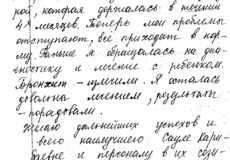 рой, которая держалась в течении
4х месяцев. Теперь мои проблемы
отступают, всё приходит в нор-
му. Раньше я обращалась на диа-
гностику и лечение с ребенком.
Бронхит - излечили. Я осталась
довольна лечением, результаты
- порадовали.
Желаю дальнейших успехов и
всего наилучшего Сауле Кари-
евне и персоналу в их